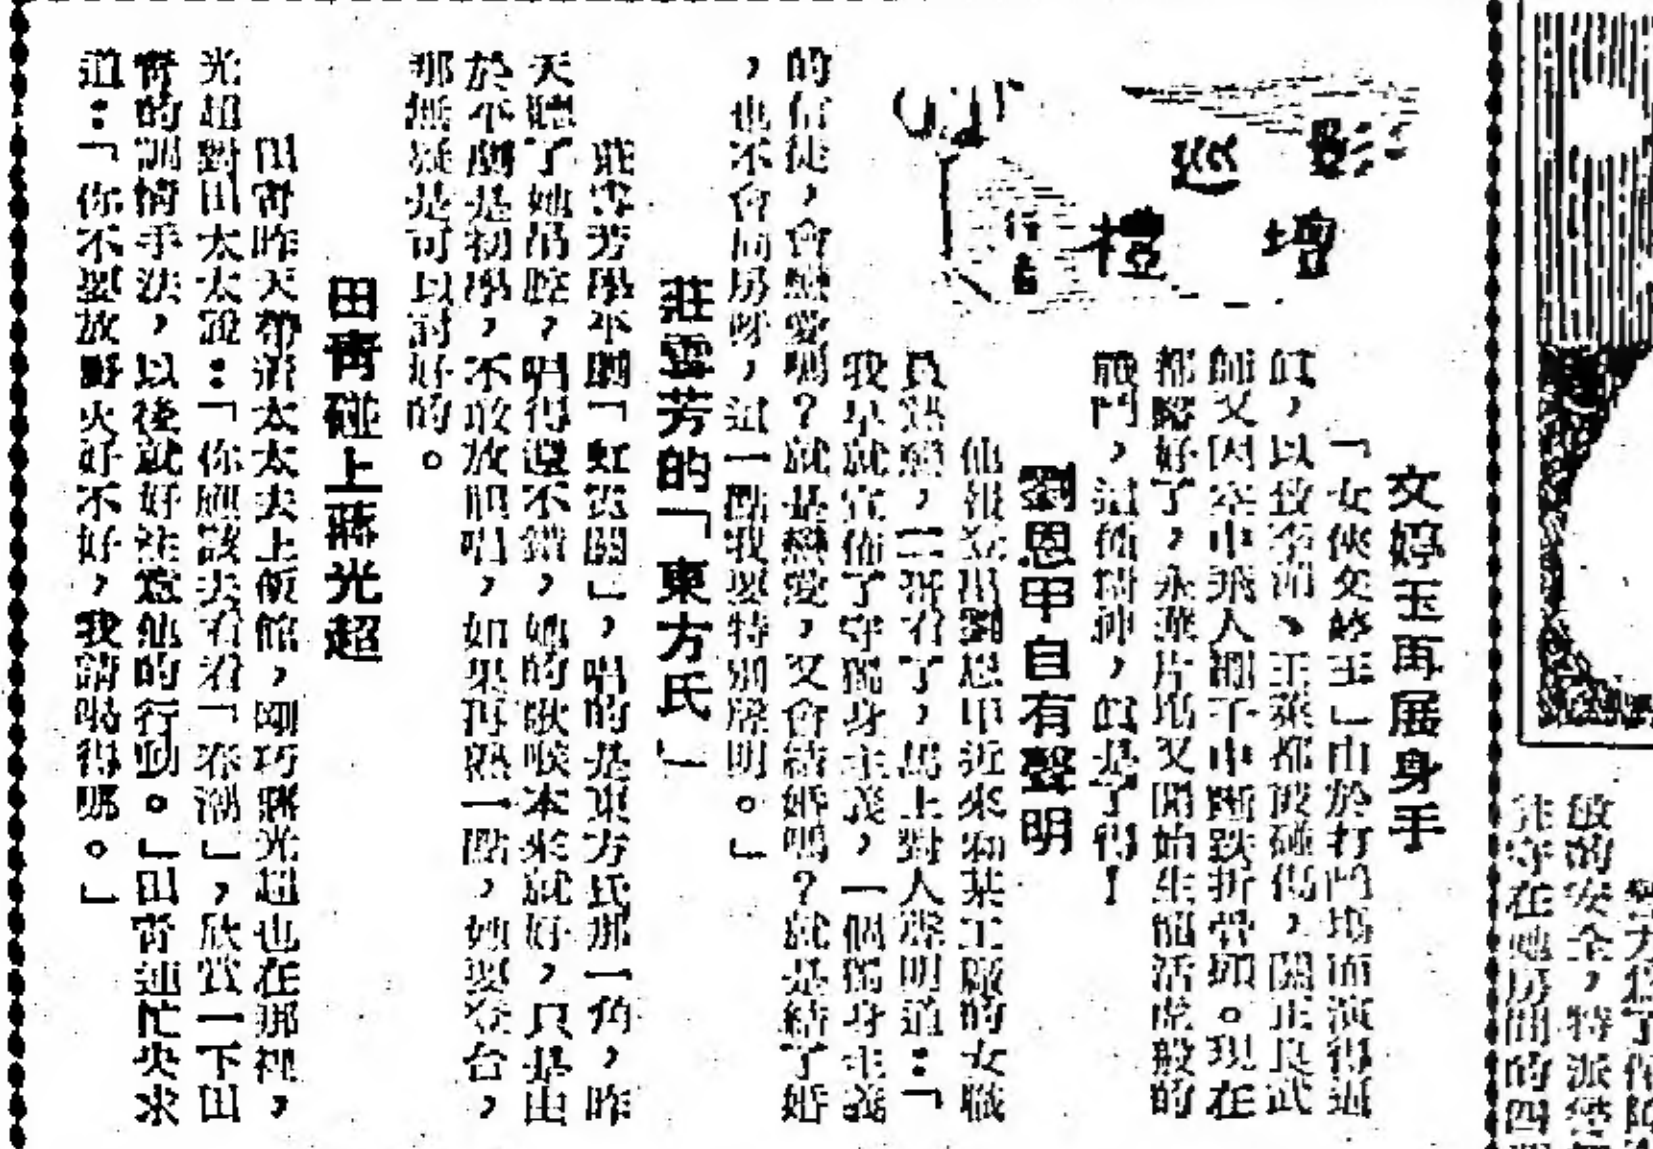 影壇
巡禮
行者
文婷玉再展身手
「女俠文婷玉」由於打鬥場面演得逼
眞，以致李湄、王萊都被碰傷，關正良武
師又因空中飛人繩子中斷跌折骨頭。現在
都醫好了，永華片場又開始生龍活虎般的
戰鬥，這種精神，眞是了得！
劉恩甲自有聲明
他報登出劉恩甲近來和某工廠的女職
員熱戀，二哥看了，馬上對人聲明道：「
我早就宣佈了守獨身主義，一個獨身主義
的信徒，會戀愛嗎？就是戀愛，又會結婚嗎？就是結了婚
，也不會同房呀，這一點我要特別聲明。」
莊雪芳的「東方氏」
莊雪芳學平劇「虹霓關」，唱的是東方氏那一角，昨
天聽了她吊腔，唱得還不錯，她的歌喉本來就好，只是由
於平劇是初學，不敢放胆唱，如果再熟一點，她要登台，
那無疑是可以討好的。
田青碰上蔣光超
田青昨天帶着太太去上飯館，剛巧蔣光超也在那裡，
光超對田太太說：「你應該去看看「春潮」，欣賞一下田
青的調情手法，以後就好注意他的行動。」田青連忙央求
道：「你不要放野火好不好，我請喝得嗎。」
敏的安全，特派
在她房間的四